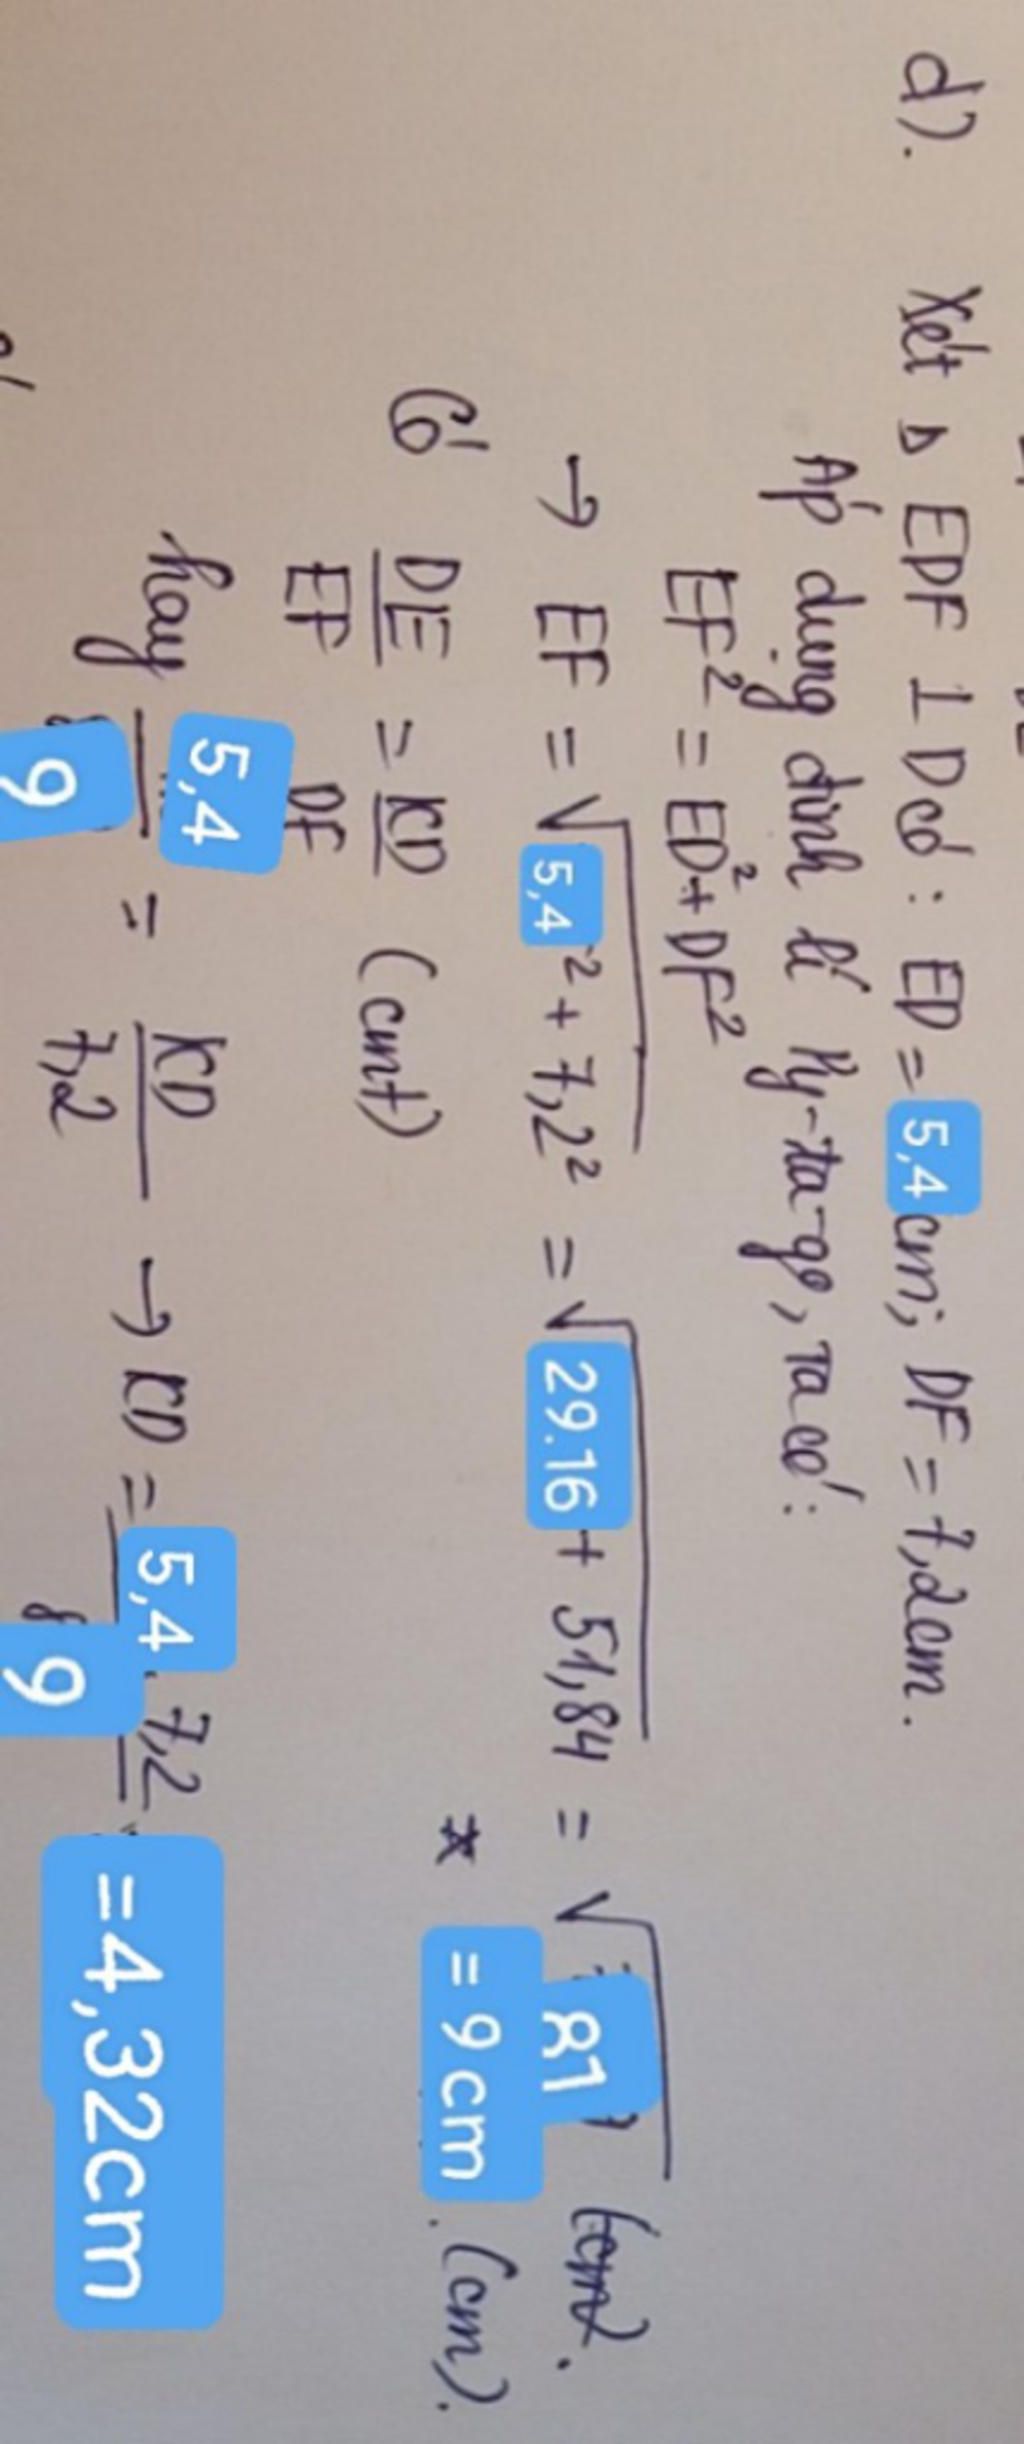 d). Xét Δ EDF ⊥ D có: ED = 5,4 cm; DF = 7,2cm.
Áp dụng định lí Py-ta-go, ta có:
EF² = ED² + DF²
→ EF = √5,4² + 7,2² = √29.16 + 51,84 = √81 (cm).
= 9cm . (cm).
Có DE/EF = KD/DF (cmt)
hay 5,4/9 = KD/7,2 → KD = 5,4 . 7,2/9 =4,32cm